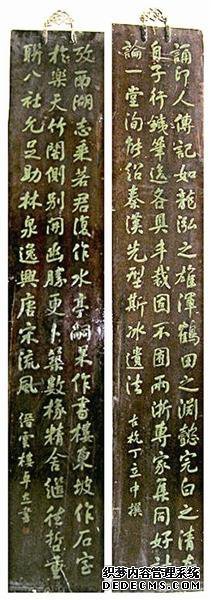 誦印人傳記如龍泓之雄渾鶴田之淵懿完白之清
自子行鐵筆後各具手裁固不囿兩浙專家集同好討
論一堂洵能紹秦漢先型斯冰遺法 古杭丁立中撰
攷西湖志乘若君復作水亭嗣杲作書樓東坡作石室
於樂天竹閣側別開幽勝更卜築數椽精舍繼往哲重
聯八社允足助林泉逸興唐宋流風 縉雲樓辛壺書
织梦内容管理系统
DEDECMS.COM